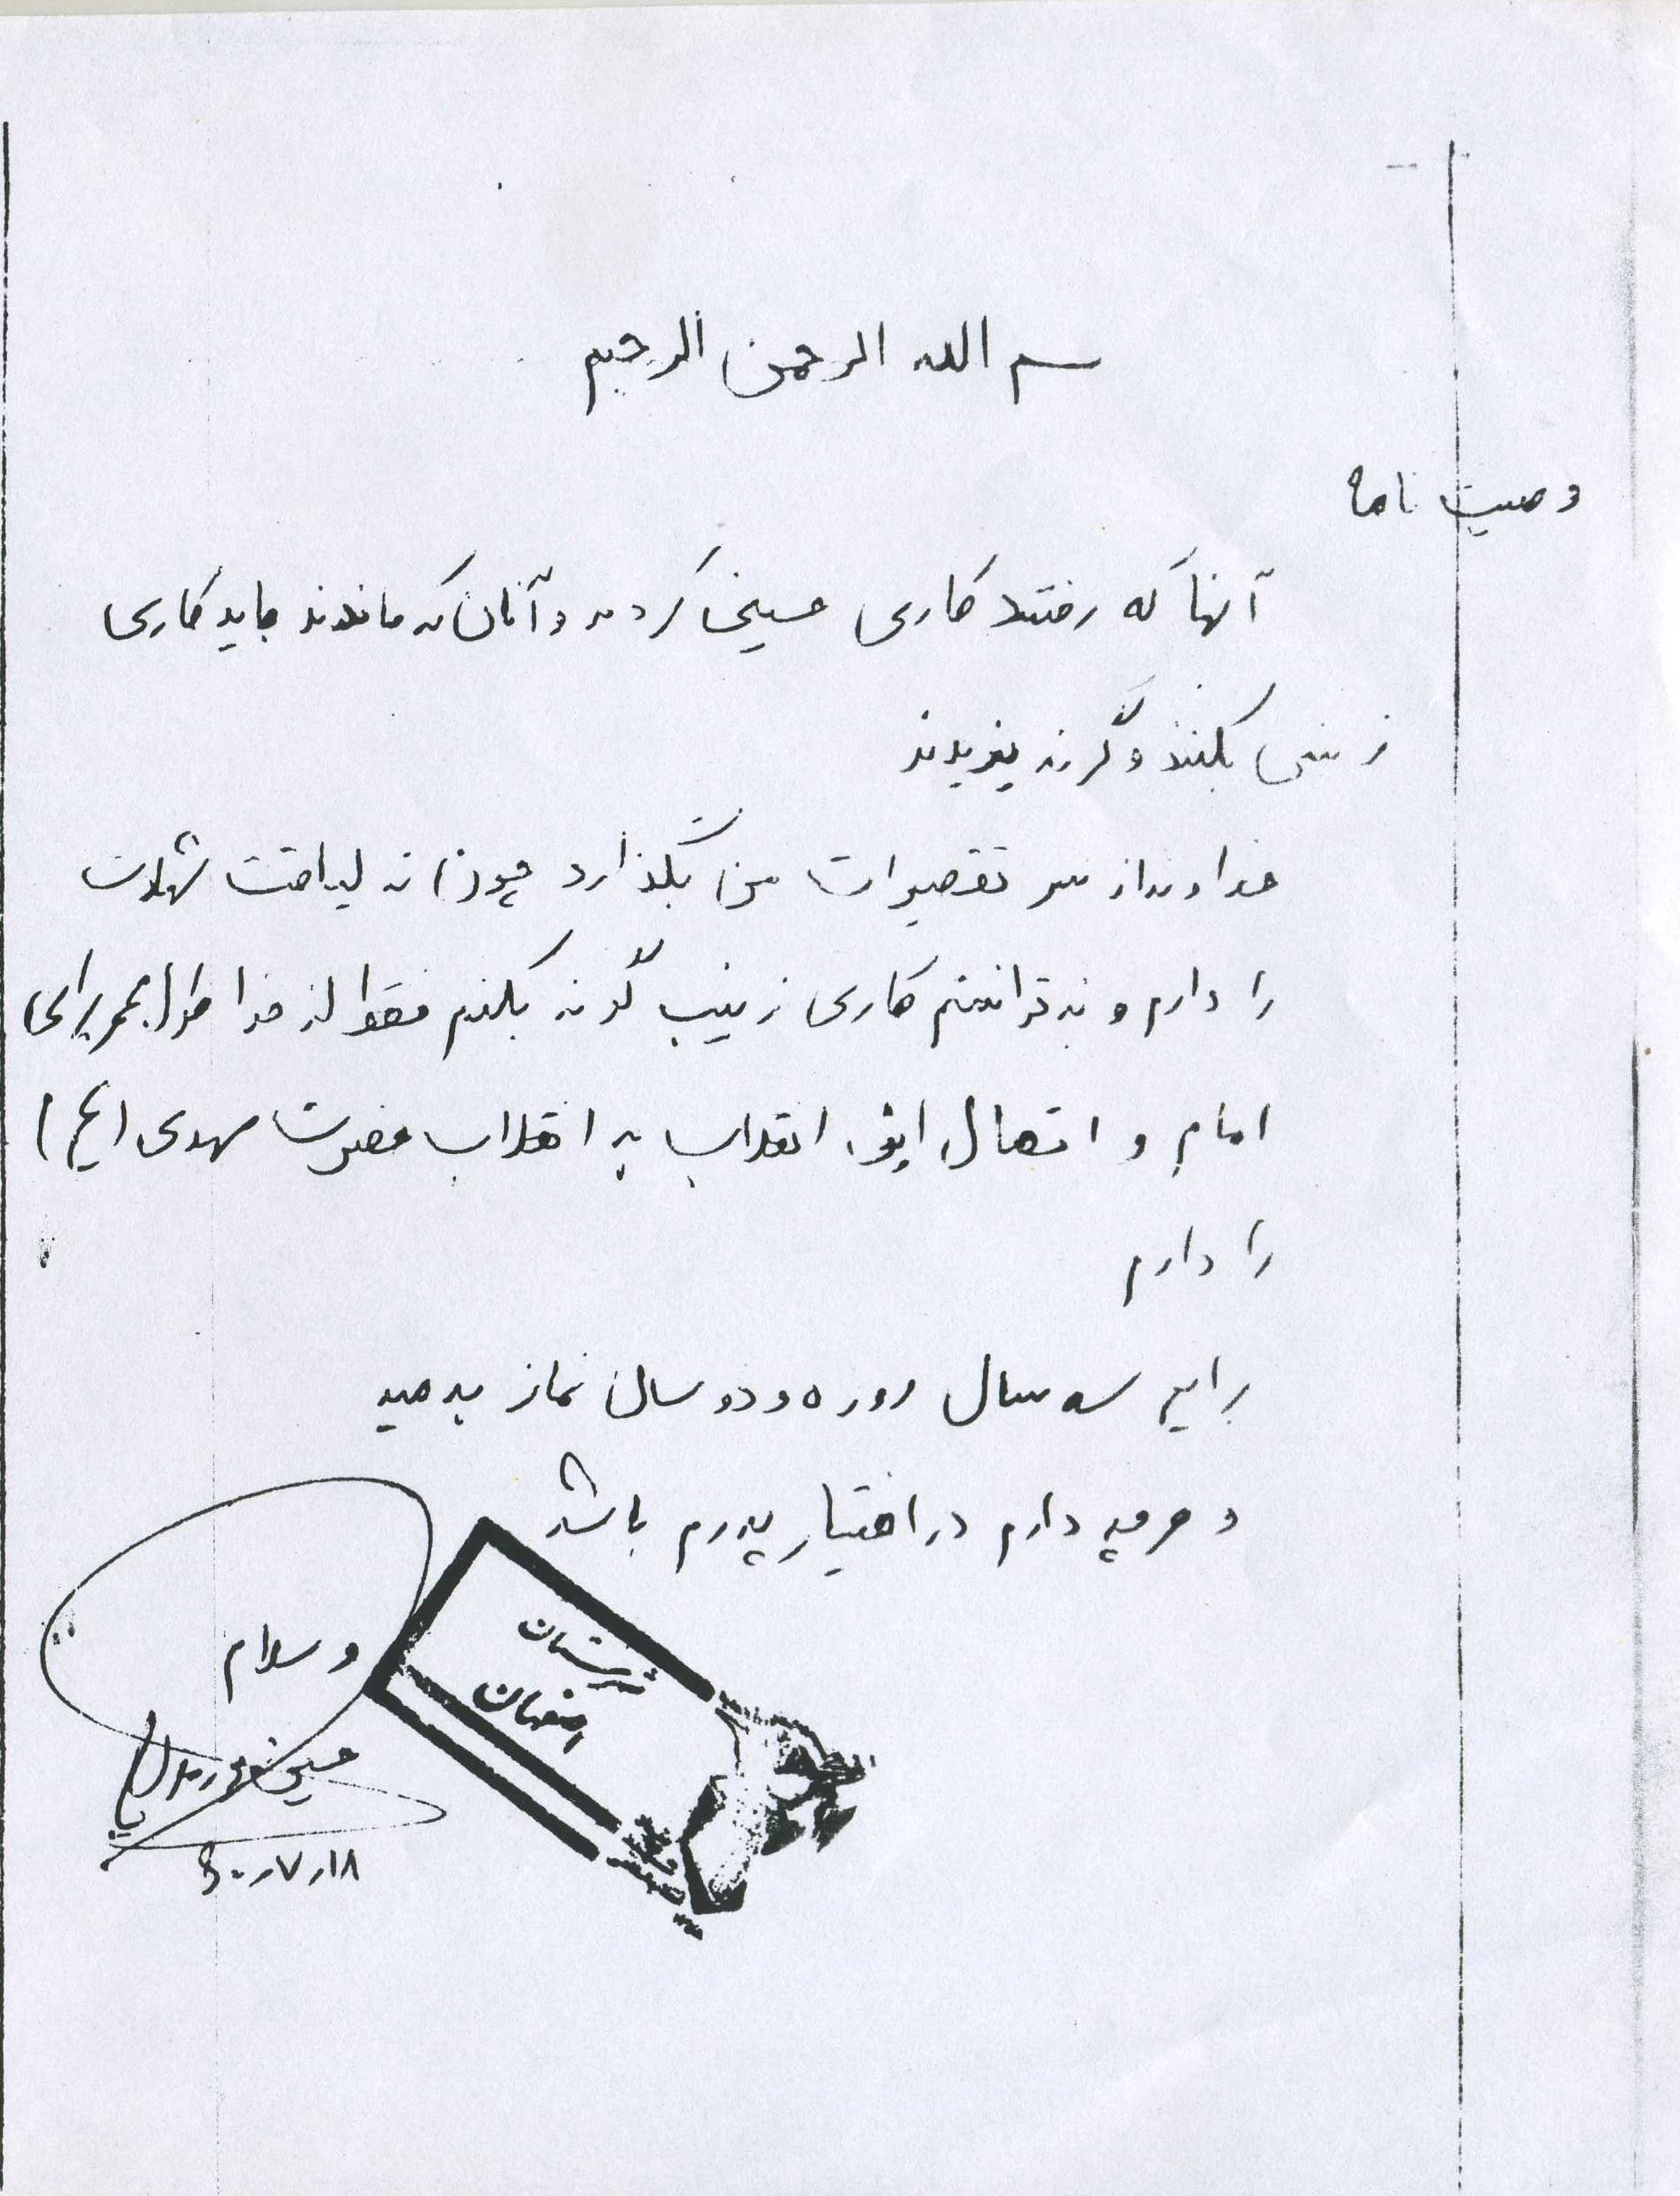 بسم الله الرحمن الرحیم
وصیت نامه
آنها که رفتند کاری حسینی کردند و آنان که ماندند باید کاری
زینبی بکنند وگرنه یزیدیند
خداوند از سر تقصیرات من بگذارد چون نه لیاقت شهادت
را دارم و نه توانستم کاری زینب گونه بکنم فقط از خدا طول عمر برای
امام و اتصال این انقلاب به انقلاب حضرت مهدی (عج)
را دارم
برایم سه سال روزه و دو سال نماز بدهید
و هرچه دارم در اختیار پدرم باشد
وسلام
شهرستان
اصفهان
حسین
۶۰٫۷٫۱۸